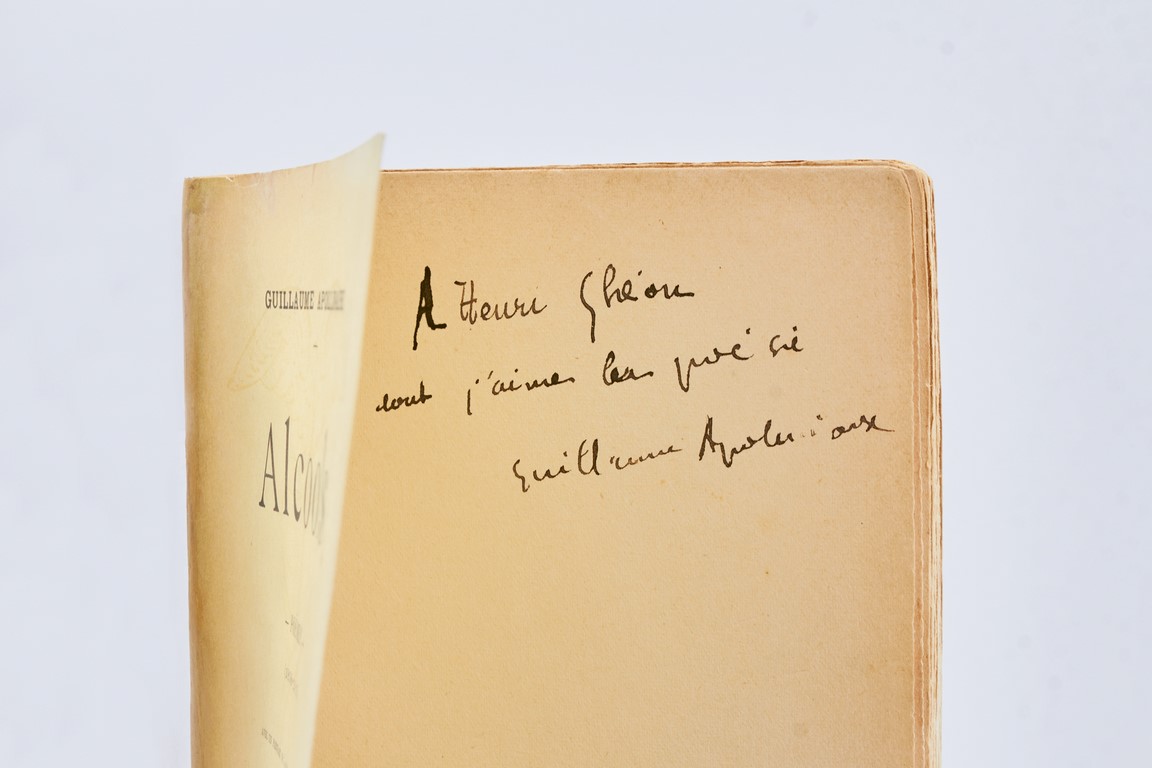 GUILLAUME APOLLINAIRE
Alcools
A Henri Ghéon
dont j'aime la poésie
Guillaume Apollinaire